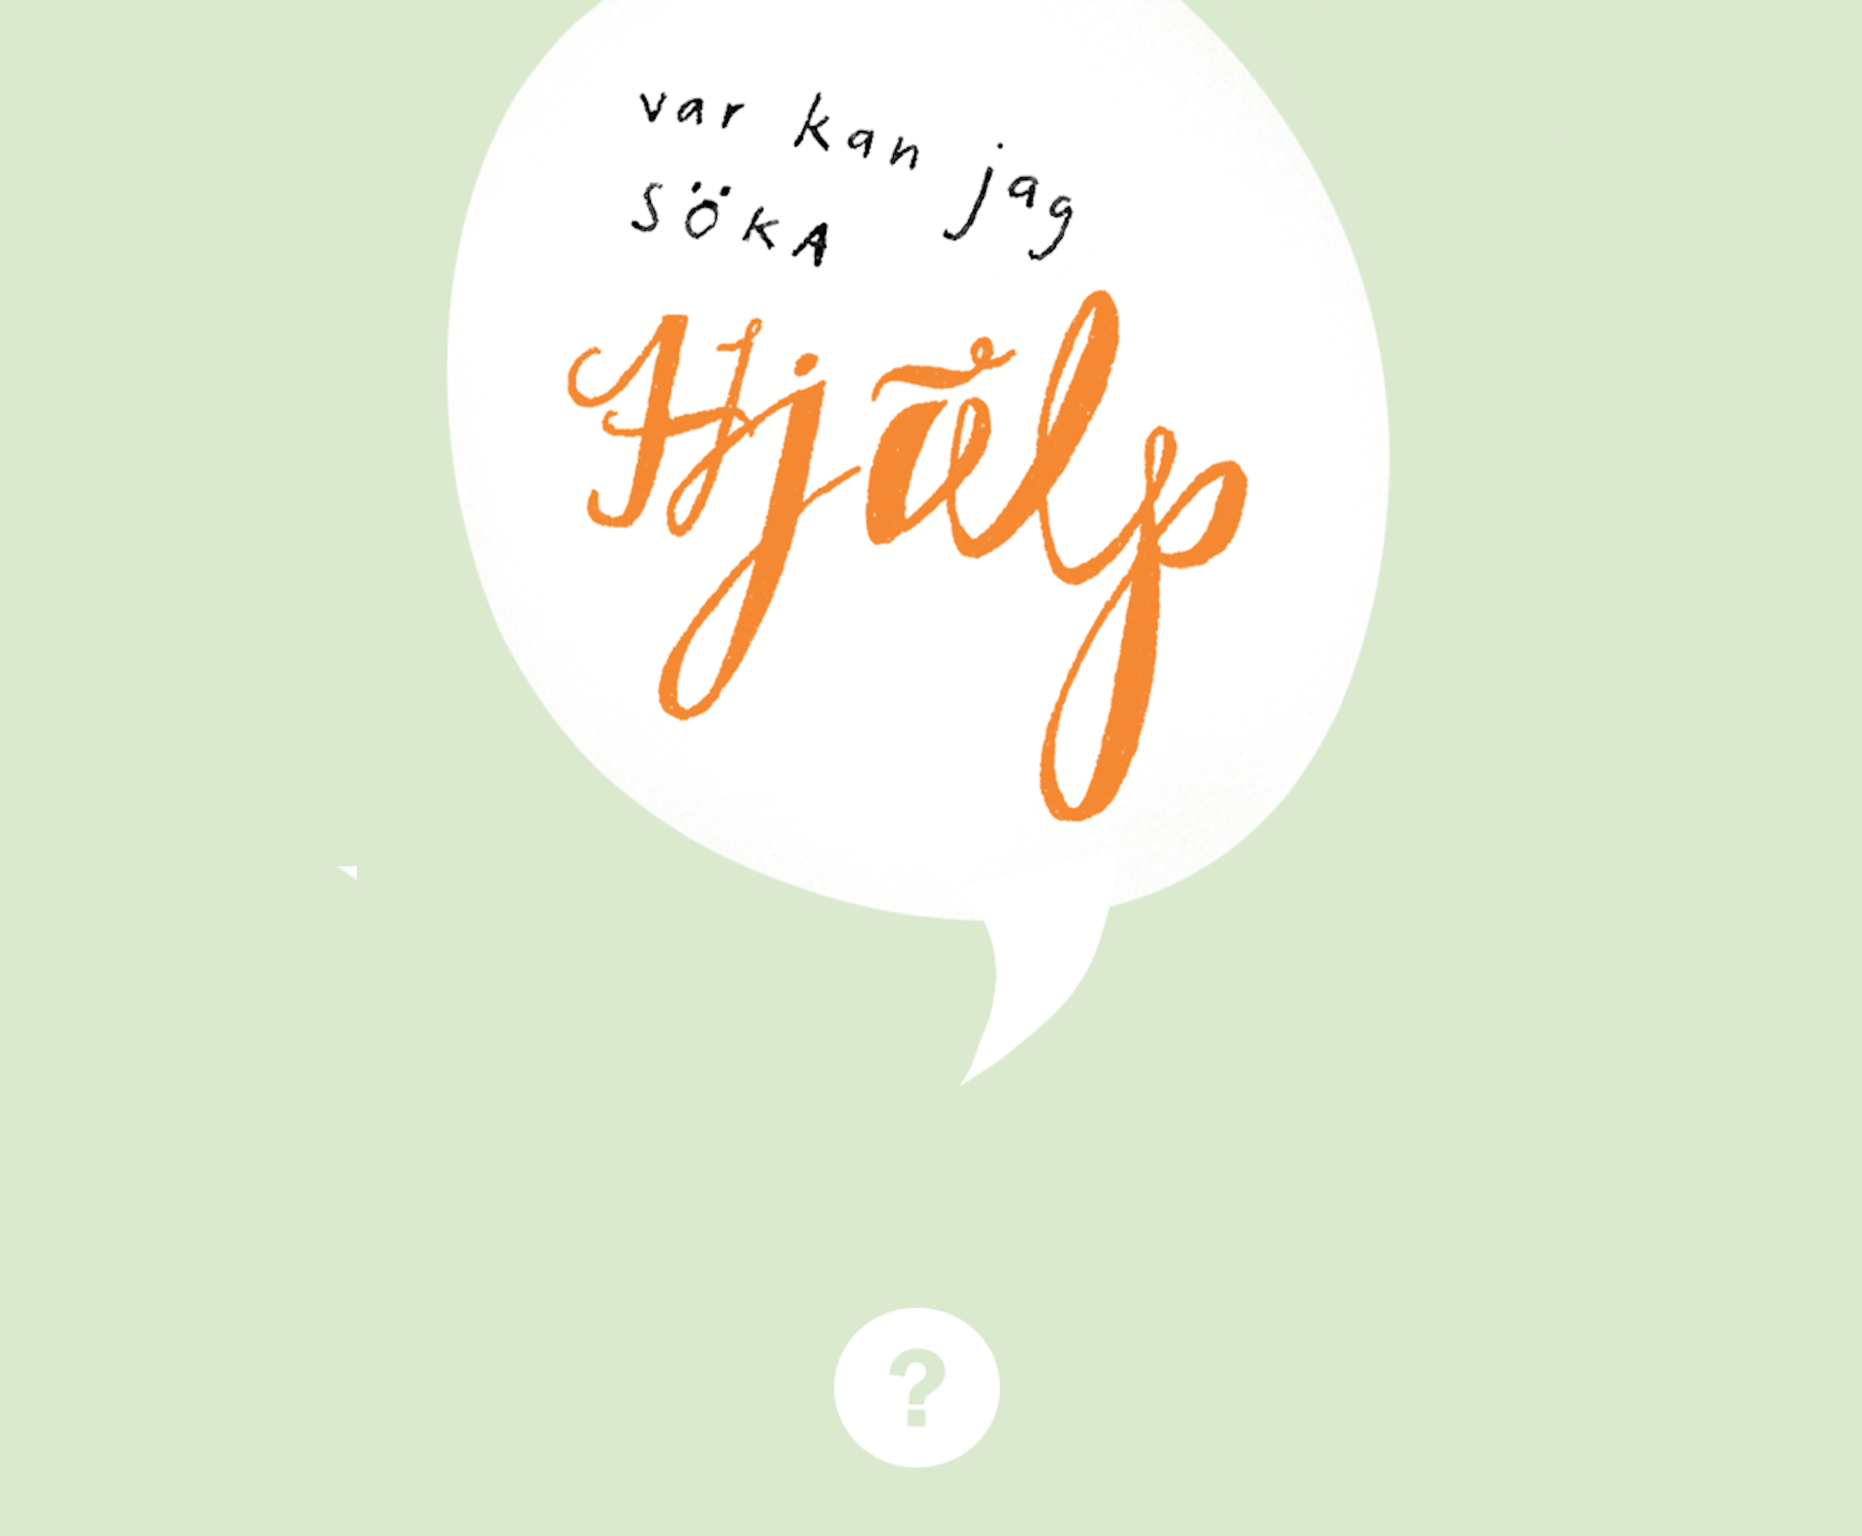 var kan jag
SÖKA
Hjälp
?